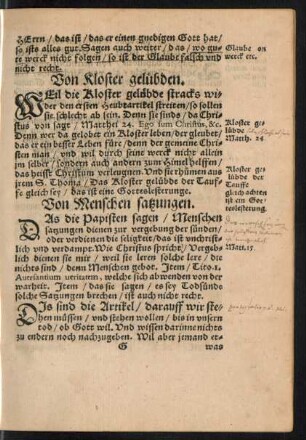 HErrn / das ist / das er einen gnedigen Gott hat /
so ists alles gut. Sagen auch weiter / das / wo gu-
te werck nicht folgen / so ist der Glaube falsch und
nicht recht.
Glaube on
werck etc.
Von Kloster gelübden.
WEil die Kloster gelübde stracks wi-
der den ersten Heubtartikel streiten / so sollen
sie schlecht ab sein. Denn sie sinds / da Chri-
stus von sagt / Matthei 24. Ego sum Christus, &c.
Denn wer da gelobet ein Kloster leben / der gleubet /
das er ein besser Leben füre / denn der gemeine Chri-
sten man / und wil durch seine werck nicht allein
im selber / sondern auch andern zum Himel helffen /
das heisst Christum verleugnen. Und sie rhümen aus
jrem S. Thoma / Das Kloster gelübde der Tauf-
fe gleich sey / das ist eine Gotteslesterunge.
Kloster ge-
lübde
Matth. 24
Kloster ge-
lübde der
Tauffe
gleich achten
ist ein Got-
teslesterung.
Von Menschen satzungen.
DAs die Papisten sagen / Menschen
satzungen dienen zur vergebung der sünden /
oder verdienen die seligkeit / das ist unchrist-
lich und verdampt. Wie Christus spricht / Vergeb-
lich dienen sie mir / weil sie leren solche lere / die
nichts sind / denn Menschen gebot. Item / Tito. 1.
Auersantium ueritatem, welche sich abwenden von der
warheit. Item / das sie sagen / es sey Todsünds
solche Satzungen brechen / ist auch nicht recht.
Matt. 15
DIs sind die Artikel / darauff wir ste-
hen müssen / und stehen wollen / bis in unsern
tod / ob Gott wil. Und wissen darinne nichts
zu endern noch nachzugeben. Wil aber jemand et-
G was